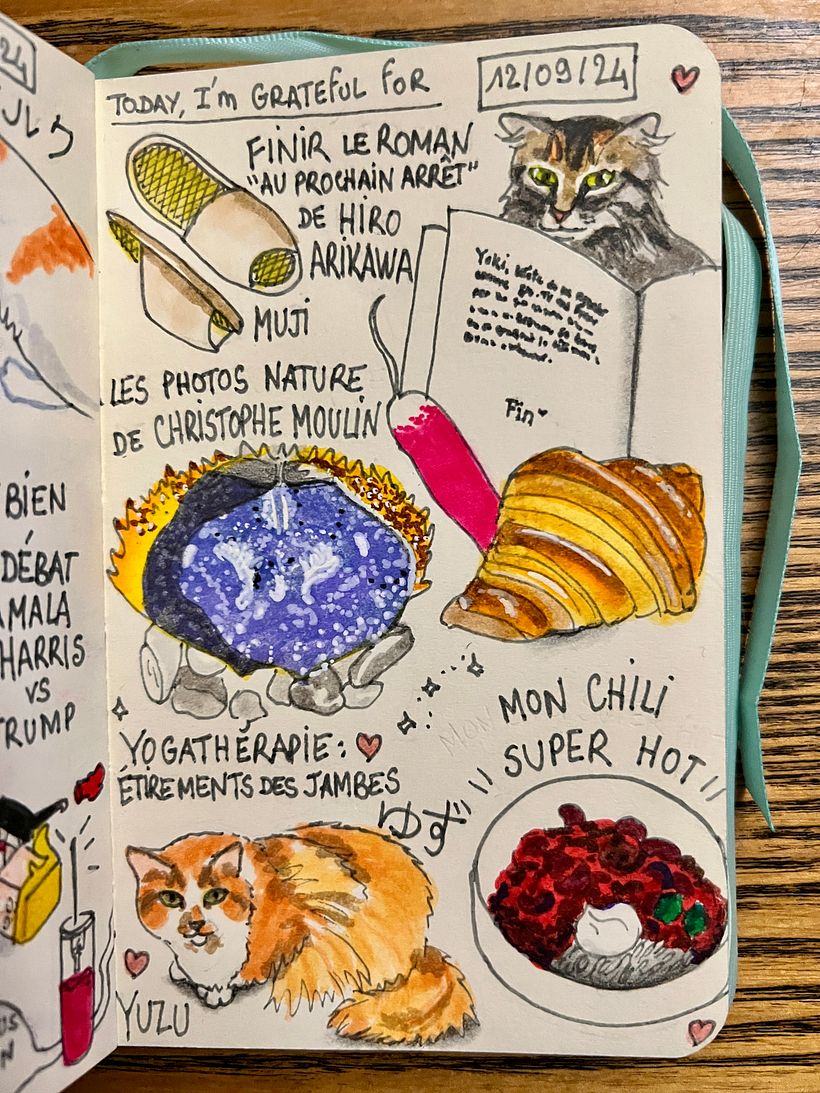 24
TODAY, I'm GRATEFUL FOR
12/09/24
FINIR LE ROMAN
"AU PROCHAIN ARRÊT"
DE HIRO
ARIKAWA
MUJI
Fin
LES PHOTOS NATURE
DE CHRISTOPHE MOULIN
YOGATHÉRAPIE:
ÉTIREMENTS DES JAMBES
MON CHILI
SUPER HOT
ゆず
YUZU
BIEN
DÉBAT
AMALA
HARRIS
VS
TRUMP